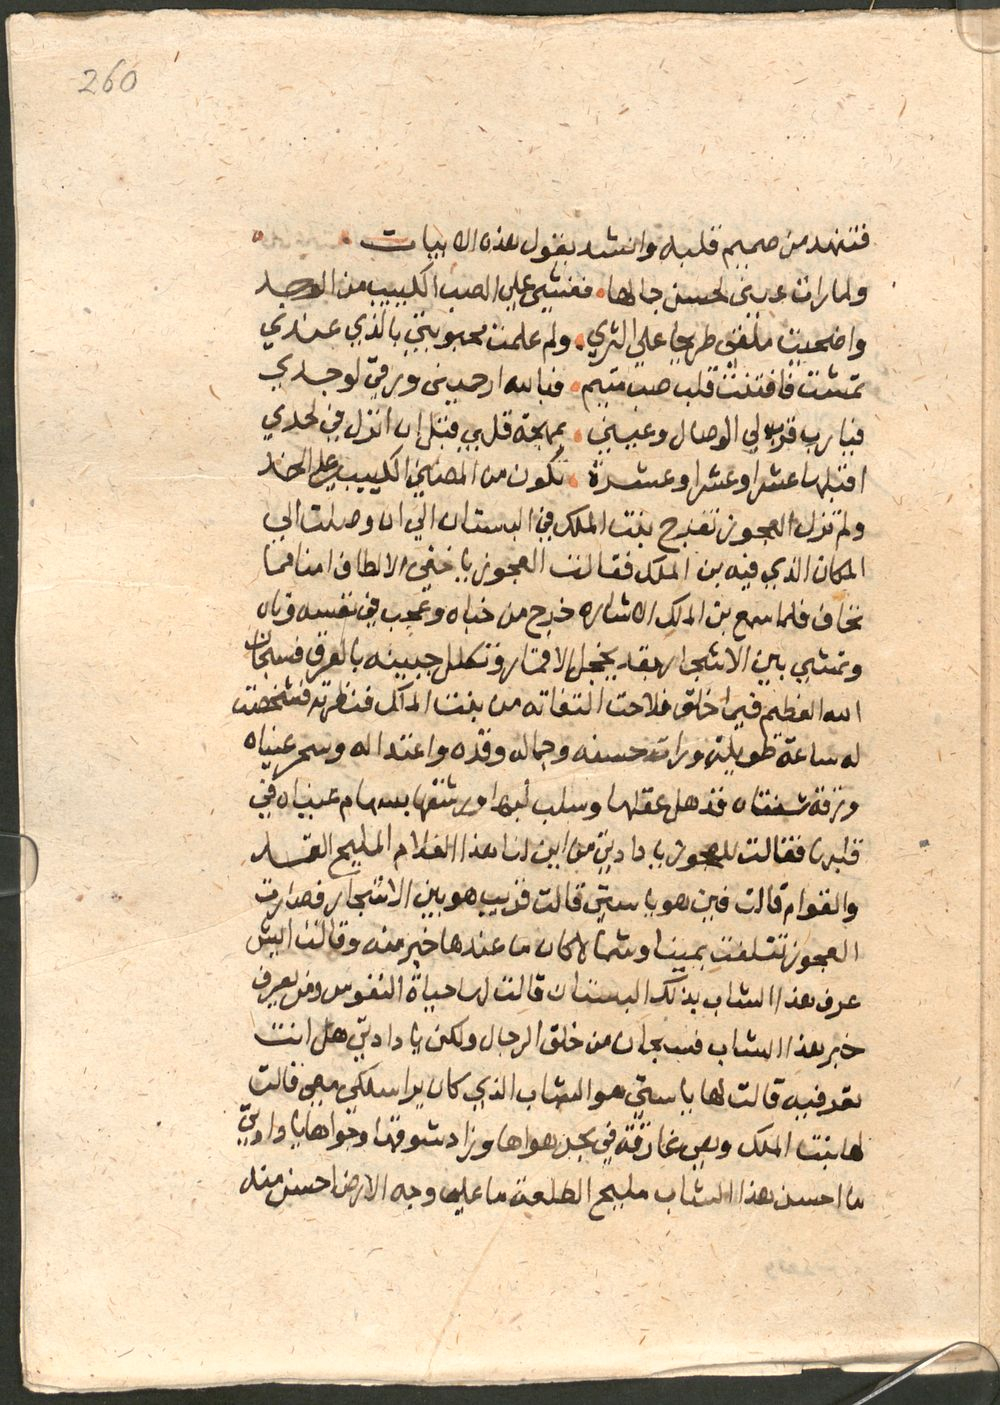 260
فتنهد من صميم قلبه وانشد يقول هذه الابيات
ولما رات عيني لحسن جمالها • ففتشي علي الصب الكييب من الوجد
واضحيت ملقي طريحا علي الثري • ولم علمت محبوبتي بالذي عندي
تمشت فافتنت قلب صب متيم • فبالله ارحميني ورقي لوجدي
فيا رب قرب لي الوصال وعيني • بمهجة قلبي قبل ان انزل في لحدي
اقبلها عشرا وعشرا وعشرة • تكون من المضني الكييب علي الخد
ولم تزل العجوز تفرج بنت الملك في البستان الي ان وصلت الي
المكان الذي فيه بن الملك فقالت العجوز يا خفي الالطاف امنا مما
نخاف فلما سمع بن الملك الاشاره خرج من خباه وعجب في نفسه وتاه
وتمشي بين الاشجار بقد يخجل الاقمار وتكلل جبينه بالعرق فسبحان
الله العظيم فيما خلق فلاحت التفاته من بنت الملك فنظرته فشخصت
له ساعة طويلة ورات حسنه وجماله وقده واعتداله وسحر عيناه
ورقة شفتاه فذهل عقلها وسلب لبها ورشقها بسهام عيناه في
قلبها فقالت للعجوز يا دادتي من اين لنا هذا الغلام المليح القد
والقوام قالت فين هو يا ستي قالت قريب هو بين الاشجار فصارت
العجوز تتلفت يمينا وشمالا كان ما عندها خبر منه وقالت ايش
عرف هذا الشاب بذلك البستان قالت لها حياة النفوس ومن يعرف
خبر هذا الشاب فسبحان من خلق الرجال ولكن يا دادتي هل انت
تعرفيه قالت لها يا ستي هو الشاب الذي كان يراسلكي معي قالت
لها بنت الملك وهي غارقة في بحر هواها وزاد شوقها وجواها يا دادتي
ما احسن هذا الشاب مليح الطلعة ما علي وجه الارض احسن منه